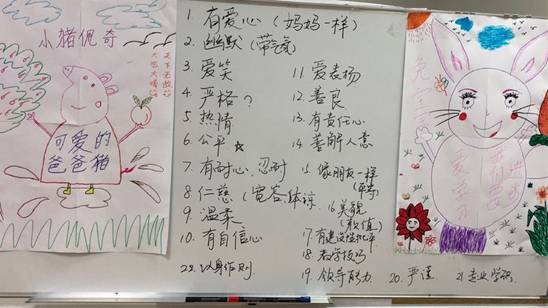 小猪佩奇
可爱的
爸爸猪
1. 有爱心（妈妈一样）
2. 幽默（带
3. 爱笑
4. 严格？
5. 热情
6. 公平☆
7. 有耐心、忍耐
8. 仁慈（宽容、体谅
9. 温柔
10. 有自信心
22. 以身作则
11. 爱表扬
12. 善良
13. 有责任心
14. 善解人意
15. 像朋友一样
16. 美貌
（颜值）
17. 有建设性批评
18. 教学技巧
19. 领导能力
20. 严谨
21. 专业学识